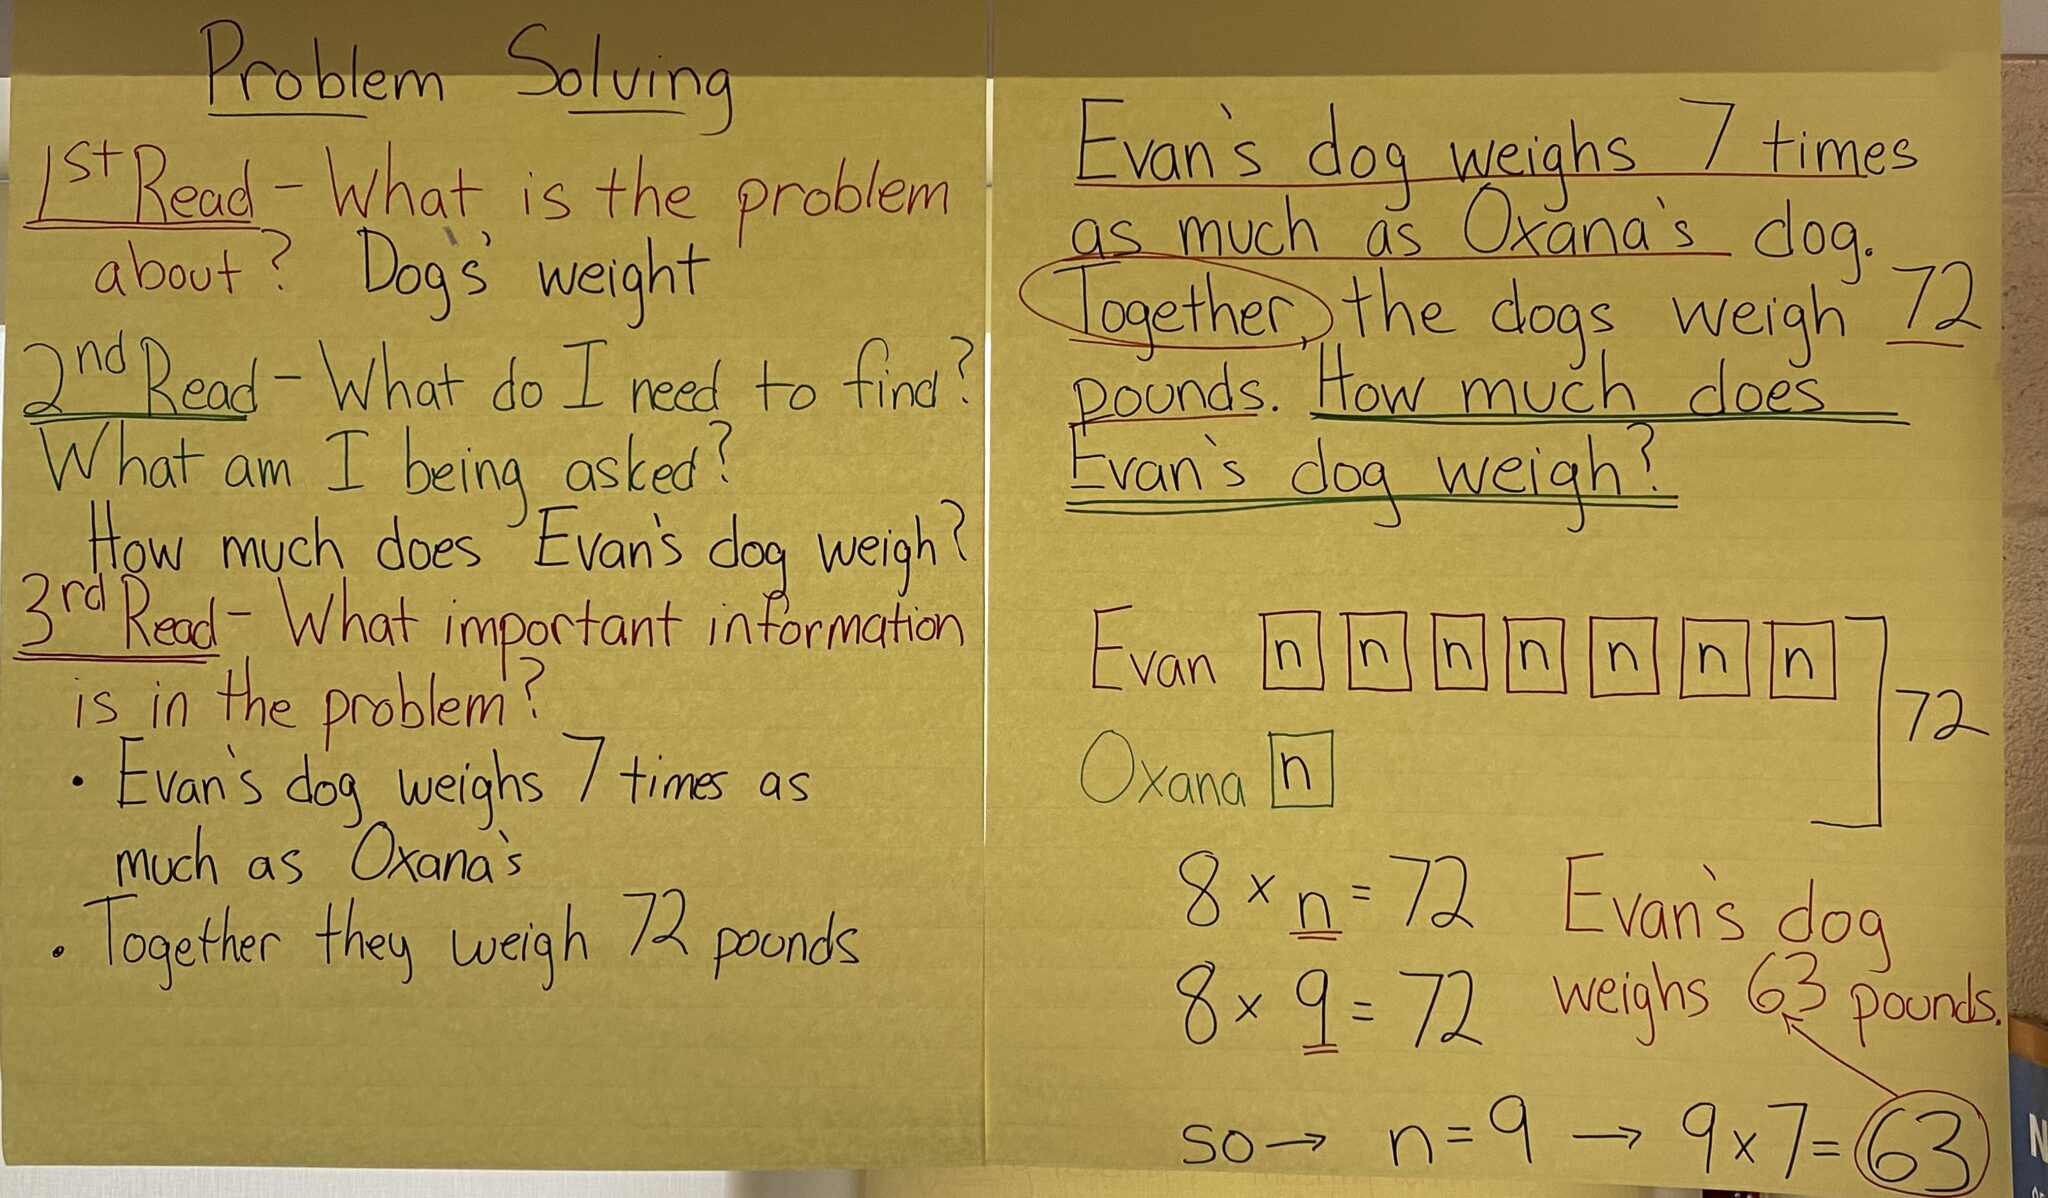 Problem Solving
1st Read - What is the problem
about? Dog's' weight
2nd Read - What do I need to find?
What am I being asked?
How much does Evan's dog weigh?
3rd Read - What important information
is in the problem?
• Evan's dog weighs 7 times as
much as Oxana's
• Together they weigh 72 pounds
Evan's dog weighs 7 times
as much as Oxana's dog.
Together, the dogs weigh 72
pounds. How much does
Evan's dog weigh?
Evan n n n n n n n
72
Oxana n
8 × n = 72
8 × 9 = 72
Evan's dog
weighs 63 pounds.
so → n = 9 → 9 × 7 = 63
N